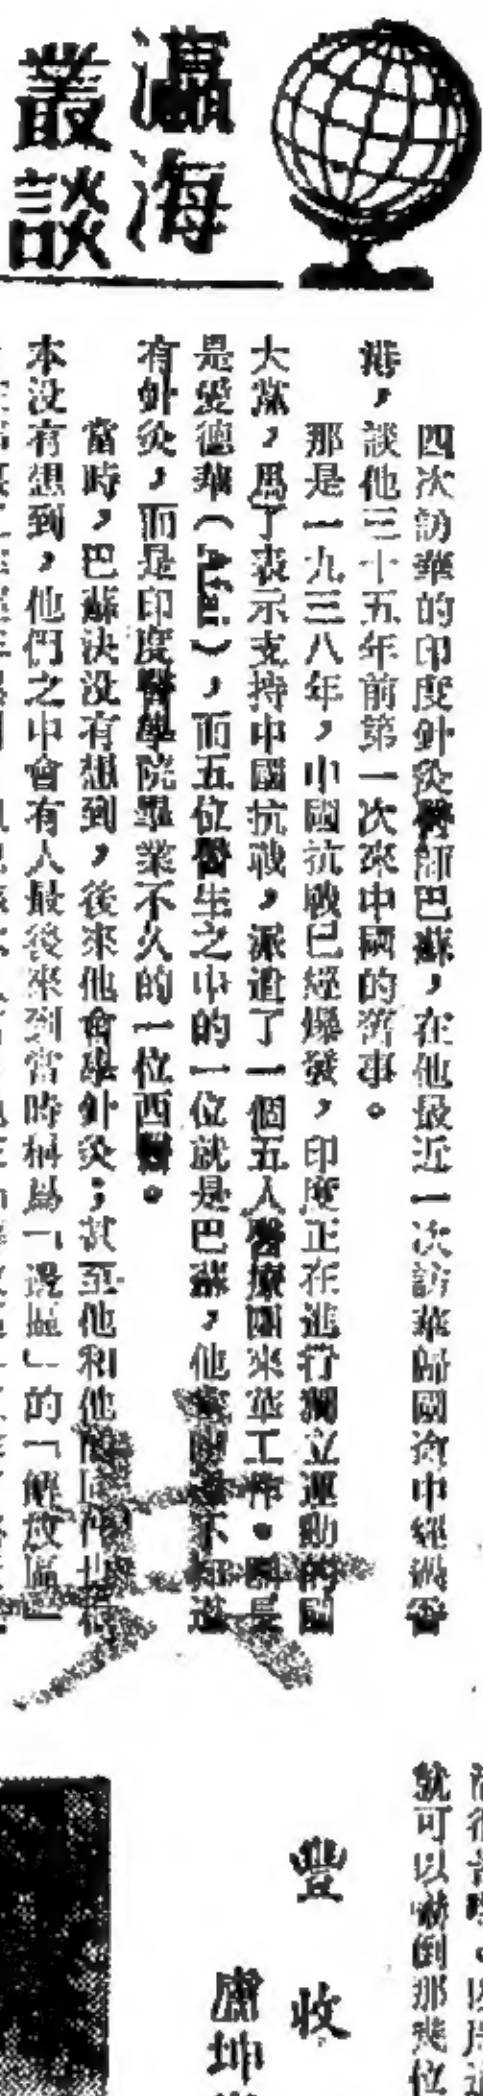 瀛海
叢談
四次訪華的印度針灸醫師巴蘇,在他最近一次訪華歸國途中經過香
港,談他三十五年前第一次來中國的舊事。
那是一九三八年,中國抗戰已經爆發,印度正在進行獨立運動的國
大黨,爲了表示支持中國抗戰,派遣了一個五人醫療團來華工作。團長
是愛德華(),而五位醫生之中的一位就是巴蘇,他不知道
有針灸,而是印度醫學院畢業不久的一位西醫。
當時,巴蘇決没有想到,後來他會學針灸;甚至他和他的同伴也根
本没有想到,他們之中會有人最後來到當時稱爲「邊區」的「解放區」
就可以嚇倒那幾位
豐收
坤